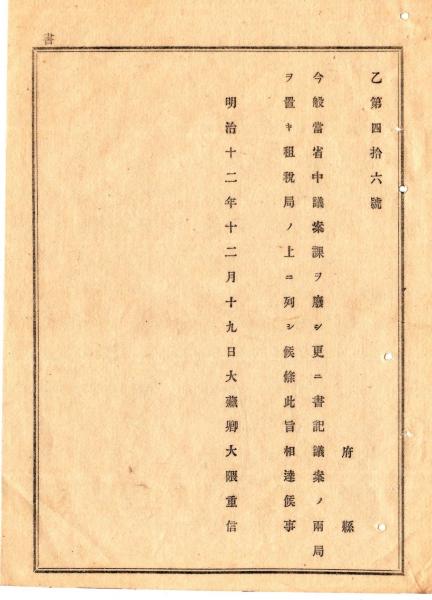 書
乙第四拾六號
府縣
今般當省中議案課ヲ廢シ更ニ書記議案ノ兩局
ヲ置キ租稅局ノ上ニ列シ候條此旨相達候事
明治十二年十二月十九日大藏卿大隈重信